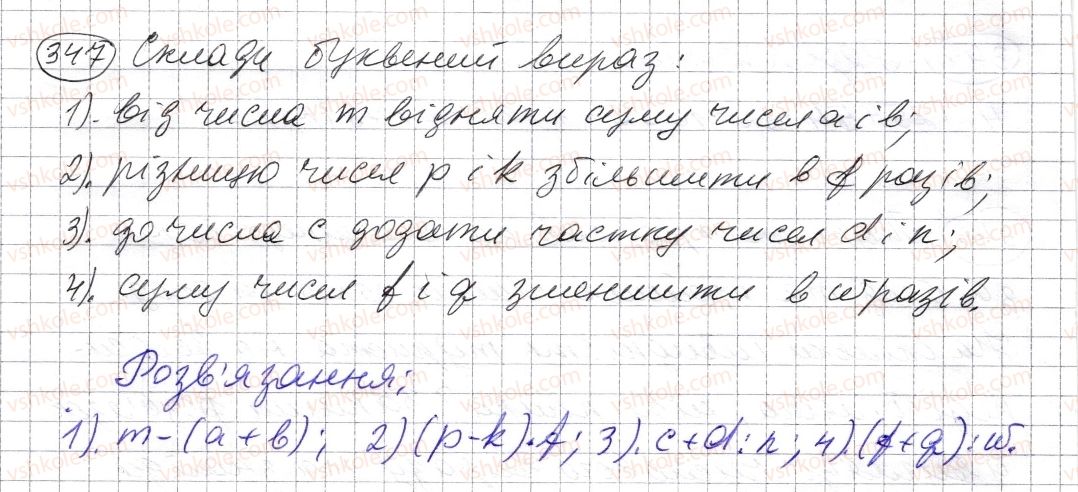 347 Склади буквений вираз:
1). від числа m відняти суму чисел a і b;
2). різницю чисел p і k збільшити в f разів;
3). до числа c додати частку чисел d і n;
4). суму чисел f і q зменшити в w разів.
Розв'язання:
1). m-(a+b); 2) (p-k)·f; 3). c+d:n; 4). (f+q):w.